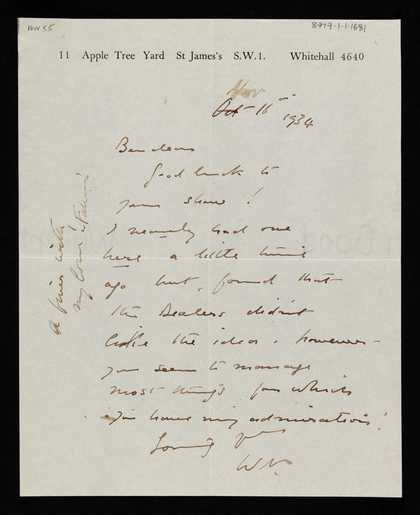 NW 55
8717.1.1.1681
11 Apple Tree Yard St James's S.W.1. Whitehall 4640
Nov
Oct 16th 1934
Ben dear
Good luck to
your show!
I nearly had one
here a little time
ago but found that
the Dealers didn't
like the idea. however-
you seem to manage
most things for which
you have my admiration!
Loving yrs
WN.
a kiss with
my love